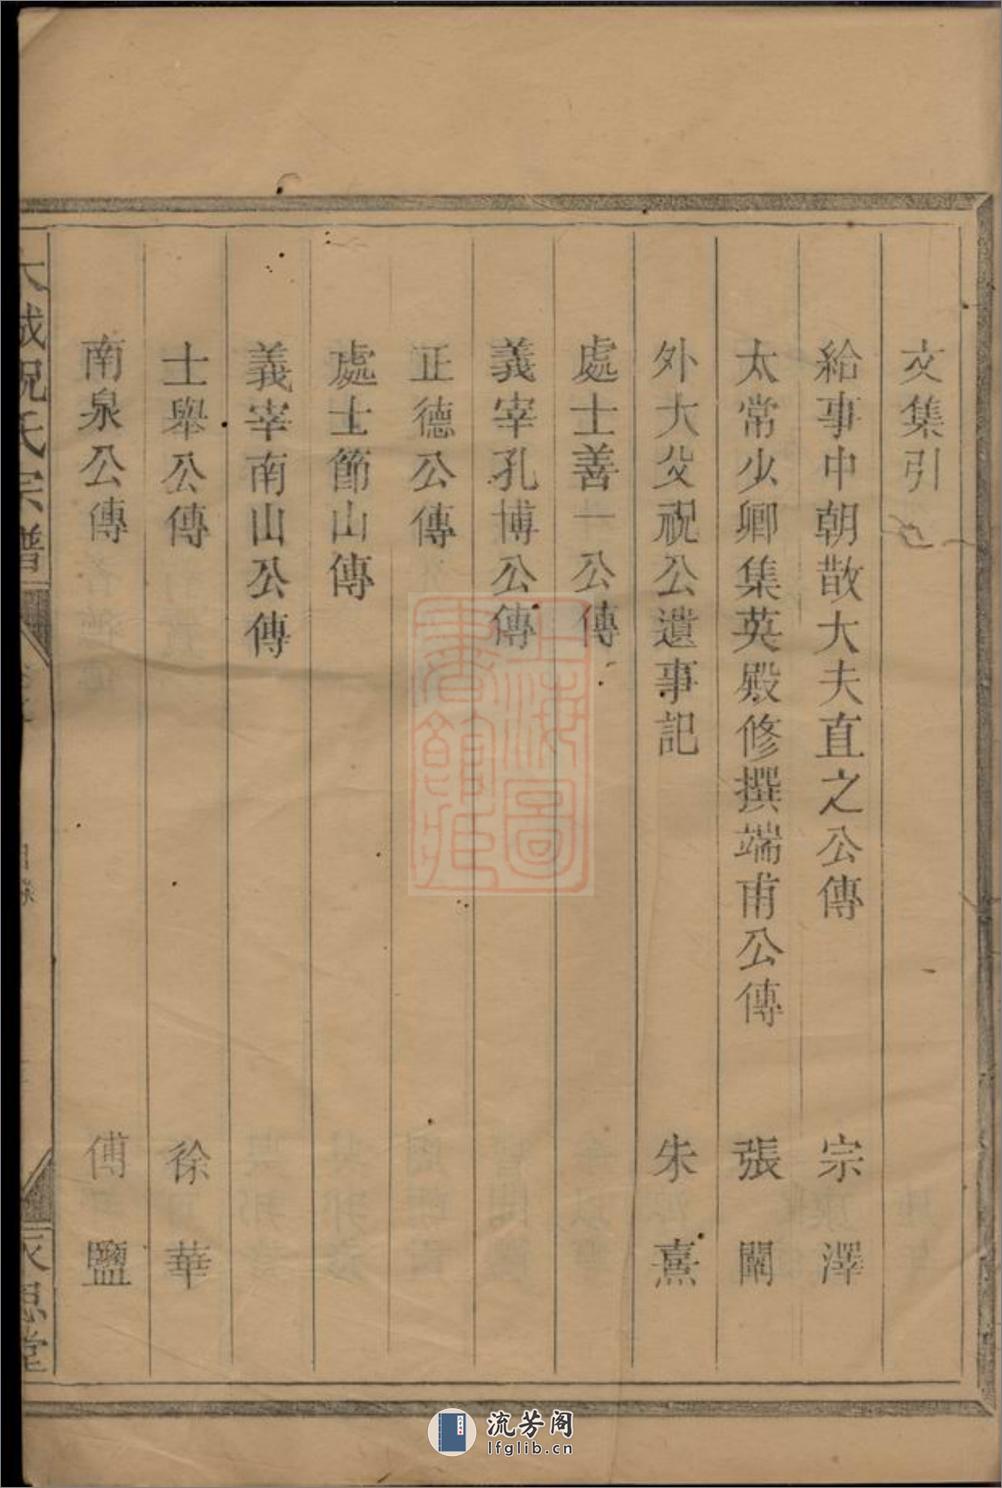 文集引
給事中朝散大夫直之公傳 宗澤
太常少卿集英殿修撰端甫公傳 張闡
外大父祝公遺事記 朱熹
處士善一公傳
義宰孔博公傳
正德公傳
處士節山傳
義宰南山公傳
士舉公傳 徐華
南泉公傳 傅鹽
祝氏宗譜
目錄
思堂
上海圖書館藏
流芳阁
lfglib.cn